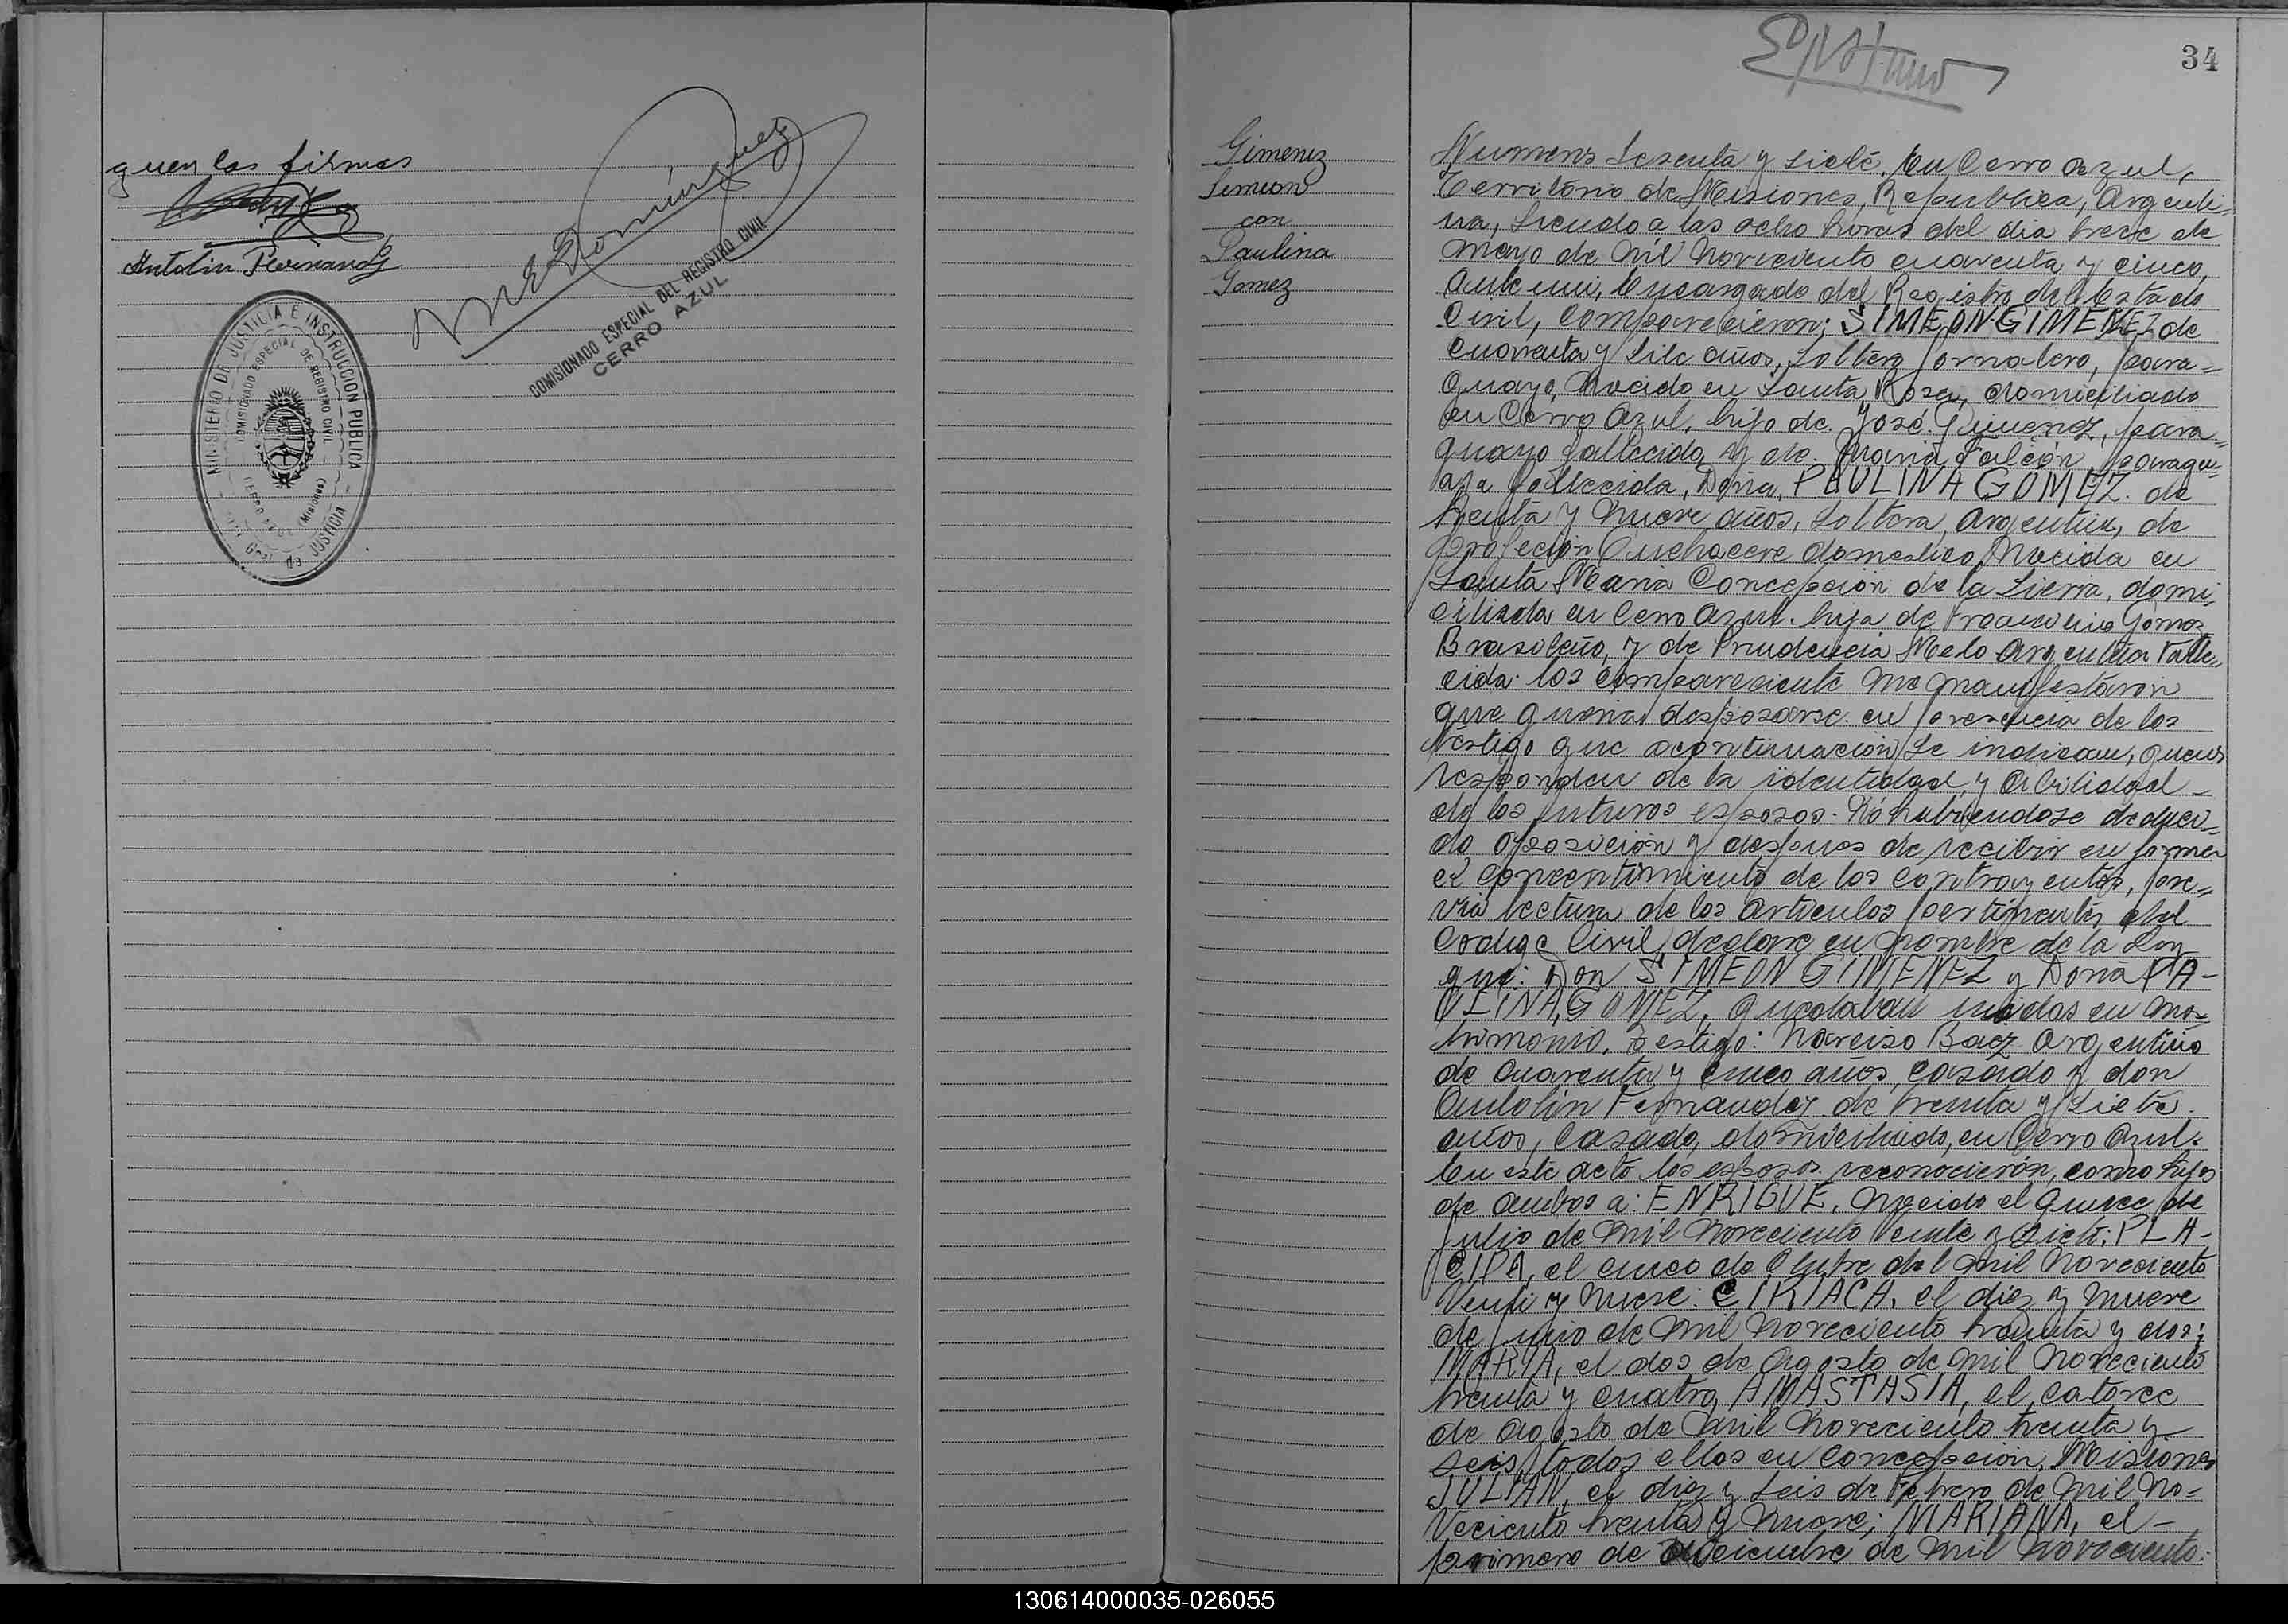 guen las firmas
Antolin Fernandz
M E Domínguez
COMISIONADO ESPECIAL DEL REGISTRO CIVIL
CERRO AZUL
MINISTERIO DE JUSTICIA E INSTRUCCION PUBLICA
COMISIONADO ESPECIAL DE REGISTRO CIVIL
CERRO AZUL (Misiones)
34
Gimenez
Simeon
con
Paulina
Gomez
Numero Sesenta y siete. En Cerro Azul,
Territorio de Misiones, Republica, Argenti-
na, siendo a las ocho horas del dia trece de
mayo de mil noveciento cuarenta y cinco,
Ante mi, Encargado del Registro del Estado
Civil, Comparecieron; SIMEON GIMENEZ de
cuarenta y siete años, soltero Jornalero, para=
guayo, nacido en Santa Rosa, domiciliado
en Cerro Azul, hijo de José Gimenez, para=
guayo fallecido y de Maria Falcón paragu-
aya fallecida, Doña, PAULINA GOMEZ. de
treinta y nueve años, soltera, argentina, de
profeción Quehacere domestico, Nacida en
Santa Maria Concepcion de la Sierra, domi-
ciliada en Cerro Azul. hija de Gomez
Brasileño, y de Prudencia Melo Argentina Falle-
cida. los compareciente me manifestaron
que querian desposarse. en presencia de los
testigo que acontinuación se indican, quenes
responden de la identidad y abilidad -
de los futuros esposos. No habiendose deduci=
do oposición y despues de recibir en forma
el concentimiento de los contrayentes, pre=
via lectura de los articulos pertinentes del
Codigo Civil, declare en nombre de la Ley
que: Don SIMEON GIMENEZ y Doña PA-
ULINA GOMEZ, quedaban unidos en ma-
trimonio. Testigo: Narciso Baez Argentino
de cuarenta y cinco años casado y don
Antolin Fernandez de treinta y siete
años, Casado, domiciliado, en Cerro Azul.
En este acto los esposos reconocierón, como hijos
de ambos a: ENRIQUE, Nacido el quince de
Julio de mil Noveciento veinte y siete; PLA-
CIDA, el cinco de Otubre del mil Noveciento
Venti y nueve: CIRIACA, el diez y nueve
de junio de mil noveciento treinta y dos;
MARIA, el dos de Agosto de mil noveciento
treinta y cuatro, ANASTASIA, el catorce
de Agosto de mil noveciento treinta y
seis, todos ellos en Concepcion, Misiones
JULIAN, el diez y seis de Febrero de mil no-
veciento treinta y nueve; MARIANA, el -
primero de Diciembre de mil noveciento.
130614000035-026055